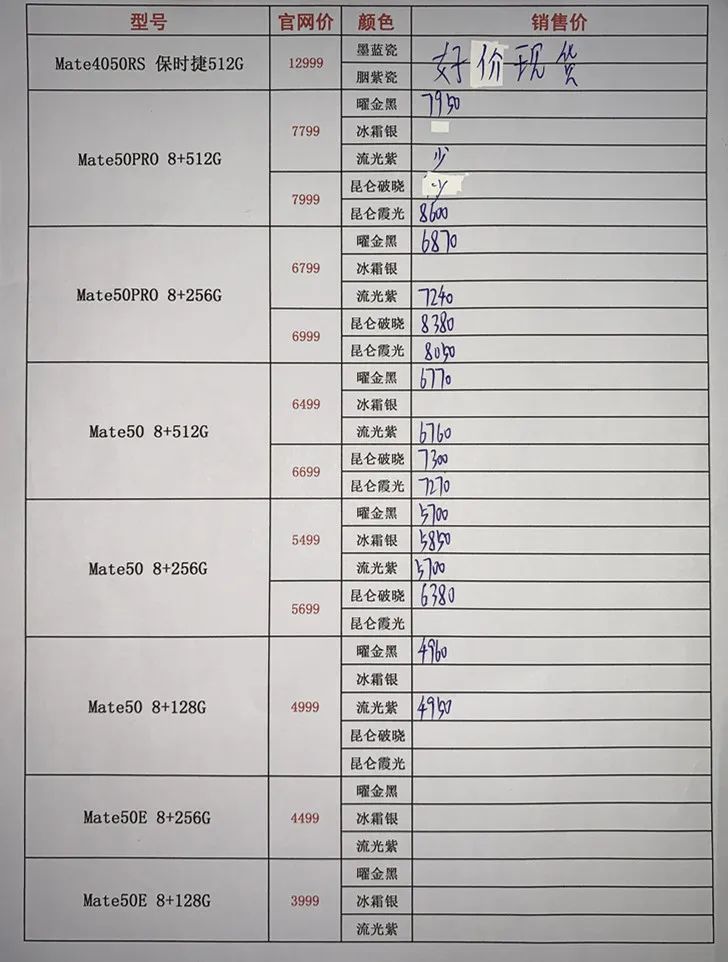 型号 官网价 颜色 销售价
Mate4050RS 保时捷512G 12999 墨蓝瓷 好价现货
胭紫瓷
Mate50PRO 8+512G 7799 曜金黑 7950
冰霜银
流光紫 少
7999 昆仑破晓 少
昆仑霞光 8600
Mate50PRO 8+256G 6799 曜金黑 6870
冰霜银
流光紫 7240
6999 昆仑破晓 8380
昆仑霞光 8050
Mate50 8+512G 6499 曜金黑 6770
冰霜银
流光紫 6760
6699 昆仑破晓 7300
昆仑霞光 7270
Mate50 8+256G 5499 曜金黑 5700
冰霜银 5850
流光紫 5700
5699 昆仑破晓 6380
昆仑霞光
Mate50 8+128G 4999 曜金黑 4960
冰霜银
流光紫 4950
昆仑破晓
昆仑霞光
Mate50E 8+256G 4499 曜金黑
冰霜银
流光紫
Mate50E 8+128G 3999 曜金黑
冰霜银
流光紫